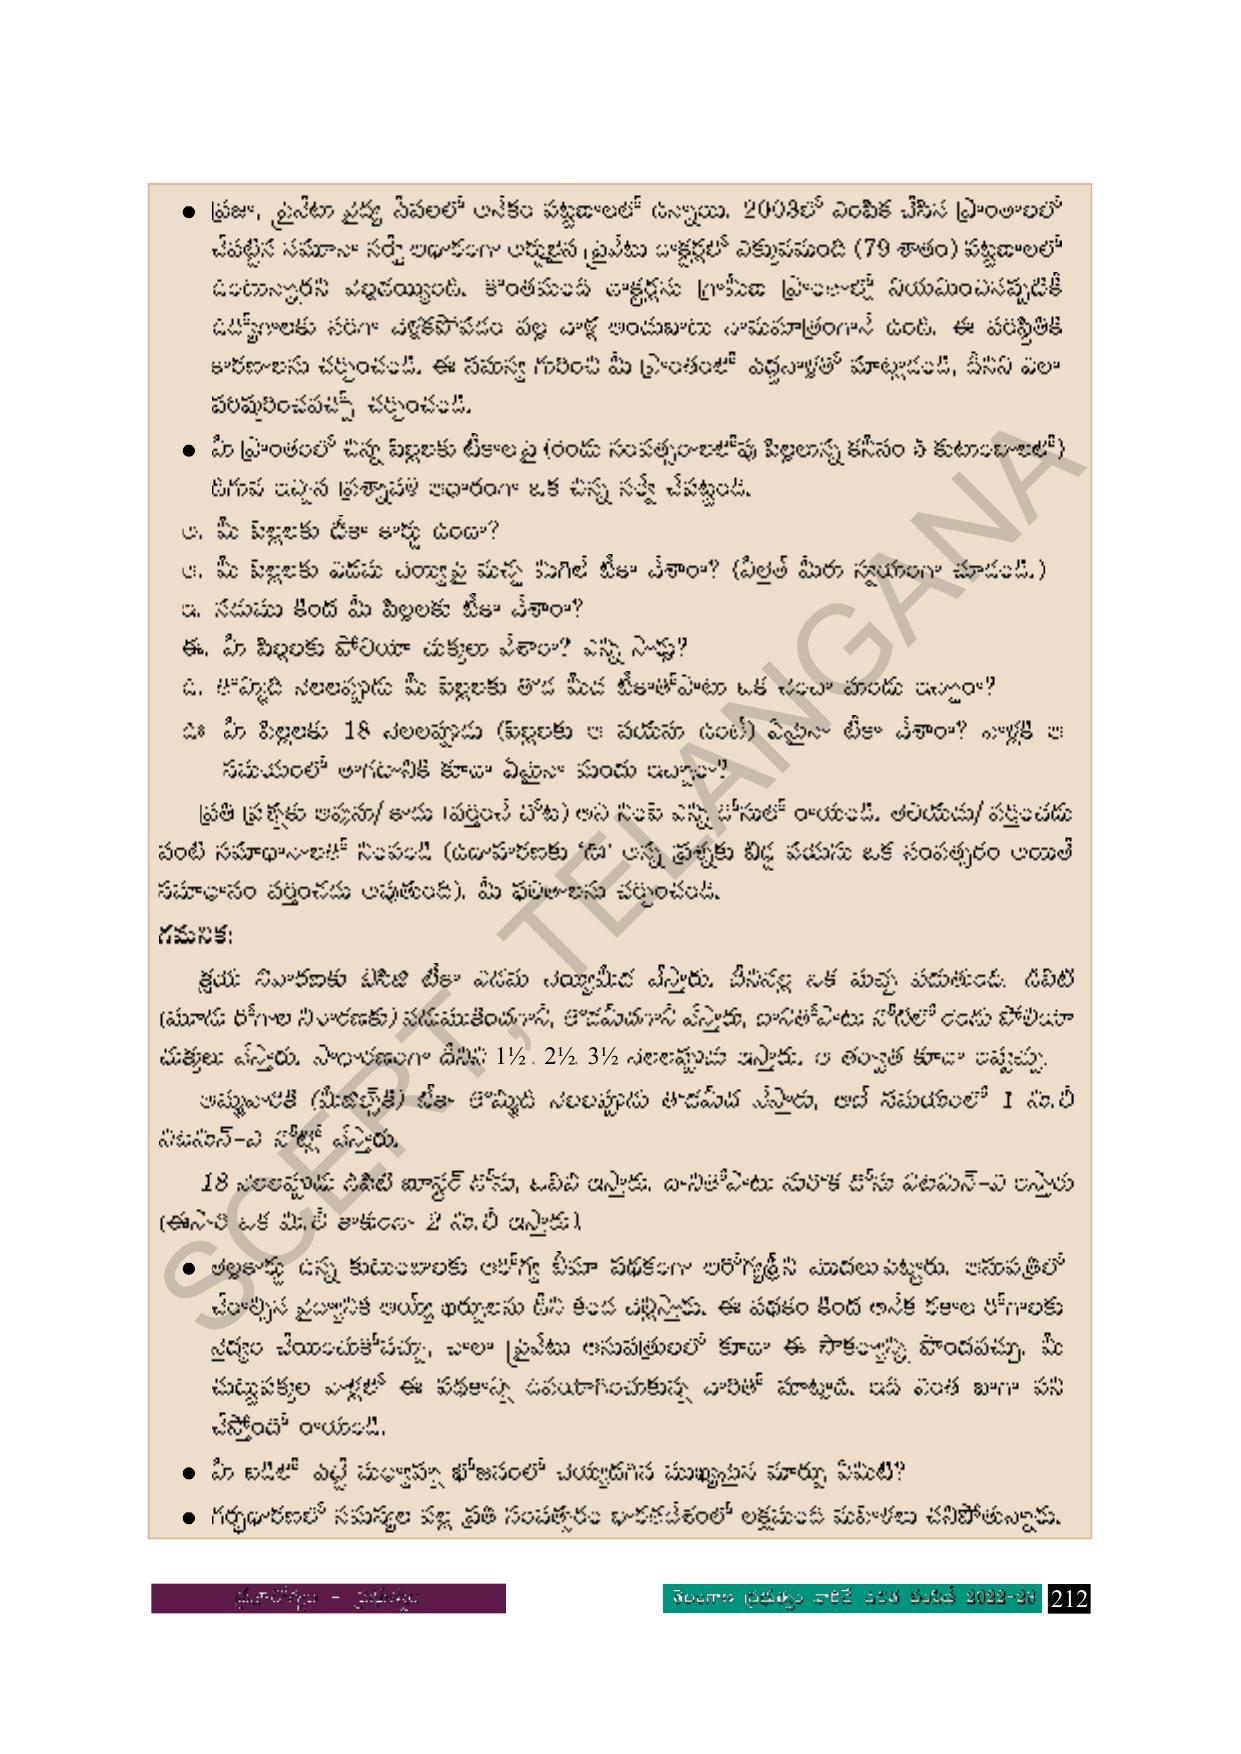 ● ప్రజా, ప్రైవేటు వైద్య సేవలలో అనేకం పట్టణాలలో ఉన్నాయి. 2003లో ఎంపిక చేసిన ప్రాంతాలలో
చేపట్టిన నమూనా సర్వే ఆధారంగా అర్హులైన ప్రైవేటు డాక్టర్లలో ఎక్కువమంది (79 శాతం) పట్టణాలలో
ఉంటున్నారని వెల్లడయ్యింది. కొంతమంది డాక్టర్లను గ్రామీణ ప్రాంతాల్లో నియమించినప్పటికీ
ఉద్యోగాలకు సరిగా వెళ్లకపోవడం వల్ల వాళ్ల అందుబాటు నామమాత్రంగానే ఉంది. ఈ పరిస్థితికి
కారణాలను చర్చించండి. ఈ సమస్య గురించి మీ ప్రాంతంలో పెద్దవాళ్లతో మాట్లాడండి, దీనిని ఎలా
పరిష్కరించవచ్చో చర్చించండి.
● మీ ప్రాంతంలో చిన్న పిల్లలకు టీకాలపై (రెండు సంవత్సరాలలోపు పిల్లలున్న కనీసం 5 కుటుంబాలలో)
దిగువ ఇచ్చిన ప్రశ్నావళి ఆధారంగా ఒక చిన్న సర్వే చేపట్టండి.
అ. మీ పిల్లలకు టీకా కార్డు ఉందా?
ఆ. మీ పిల్లలకు ఎడమ చెయ్యిపై మచ్చ మిగిలే టీకా వేశారా? (వీలైతే మీరు స్వయంగా చూడండి.)
ఇ. నడుము కింద మీ పిల్లలకు టీకా వేశారా?
ఈ. మీ పిల్లలకు పోలియో చుక్కలు వేశారా? ఎన్ని సార్లు?
ఉ. తొమ్మిది నెలలప్పుడు మీ పిల్లలకు తొడ మీద టీకాతోపాటు ఒక చెంచా మందు ఇచ్చారా?
ఊ. మీ పిల్లలకు 18 నెలలప్పుడు (పిల్లలకు ఆ వయసు ఉంటే) ఏమైనా టీకా వేశారా? వాళ్లకి ఆ
సమయంలో తాగడానికి కూడా ఏమైనా మందు ఇచ్చారా?
ప్రతి ప్రశ్నకు అవును/ కాదు (వర్తించే చోట) అని నింపి ఎన్ని డోసులో రాయండి. తెలియదు/ వర్తించదు
వంటి సమాధానాలతో నింపండి (ఉదాహరణకు 'ఊ' అన్న ప్రశ్నకు బిడ్డ వయసు ఒక సంవత్సరం అయితే
సమాధానం వర్తించదు అవుతుంది). మీ ఫలితాలను చర్చించండి.
గమనిక:
క్షయ నివారణకు బిసిజి టీకా ఎడమ చెయ్యిమీద వేస్తారు. దీనివల్ల ఒక మచ్చ పడుతుంది. డిపిటి
(మూడు రోగాల నివారణకు) నడుముకిందగానీ, తొడమీదగానీ వేస్తారు, దానితోపాటు నోటిలో రెండు పోలియో
చుక్కలు వేస్తారు. సాధారణంగా దీనిని 1½ , 2½, 3½ నెలలప్పుడు ఇస్తారు. ఆ తర్వాత కూడా ఇవ్వచ్చు.
అమ్మవారికి (మీజిల్స్‌కి) టీకా తొమ్మిది నెలలప్పుడు తొడమీద వేస్తారు, అదే సమయంలో 1 మి.లీ
విటమిన్-ఎ నోట్లో వేస్తారు.
18 నెలలప్పుడు డిపిటి బూస్టర్ డోసు, ఒపివి ఇస్తారు. దానితోపాటు మరొక డోసు విటమిన్-ఎ ఇస్తారు
(ఈసారి ఒక మి.లీ కాకుండా 2 మి.లీ ఇస్తారు).
● తెల్లకార్డు ఉన్న కుటుంబాలకు ఆరోగ్య బీమా పథకంగా ఆరోగ్యశ్రీని మొదలుపెట్టారు. ఆసుపత్రిలో
చేరాల్సిన వైద్యానికి అయ్యే ఖర్చులను దీని కింద చెల్లిస్తారు. ఈ పథకం కింద అనేక రకాల రోగాలకు
వైద్యం చేయించుకోవచ్చు, చాలా ప్రైవేటు ఆసుపత్రులలో కూడా ఈ సౌకర్యాన్ని పొందవచ్చు. మీ
చుట్టుపక్కల వాళ్లలో ఈ పథకాన్ని ఉపయోగించుకున్న వారితో మాట్లాడి. ఇది ఎంత బాగా పని
చేస్తోందో రాయండి.
● మీ బడిలో పెట్టే మధ్యాహ్న భోజనంలో చెయ్యదగిన ముఖ్యమైన మార్పు ఏమిటి?
● గర్భధారణలో సమస్యల వల్ల ప్రతి సంవత్సరం భారతదేశంలో లక్షమంది మహిళలు చనిపోతున్నారు.
SCERT, TELANGANA
ప్రజారోగ్యం - ప్రభుత్వం
తెలంగాణ ప్రభుత్వం వారిచే ఉచిత పంపిణీ 2022-23 212